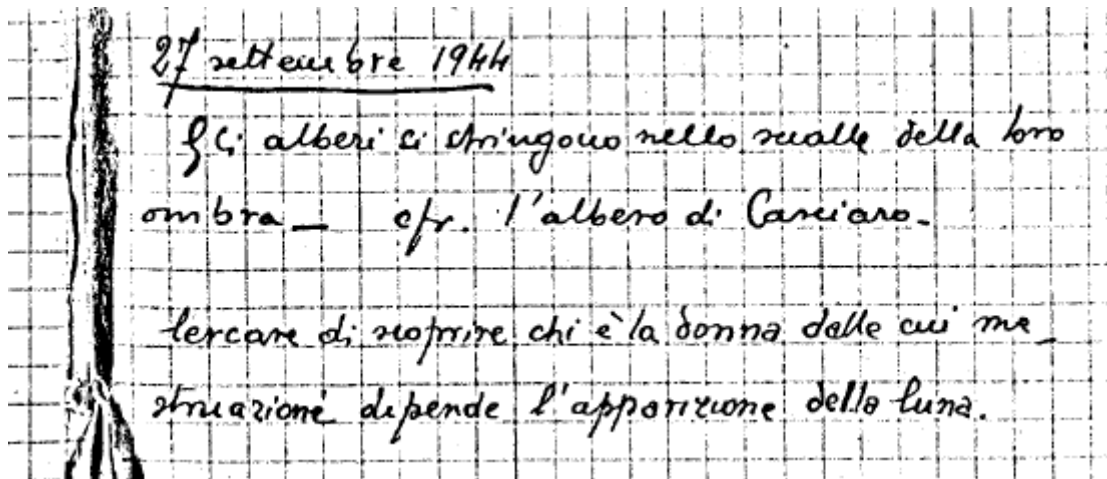 27 settembre 1944
Gli alberi si stringono nello scialle della loro
ombra — cfr. l'albero di
Cercare di scoprire chi è la donna dalle cui me_
struazioni dipende l'apparizione della luna.